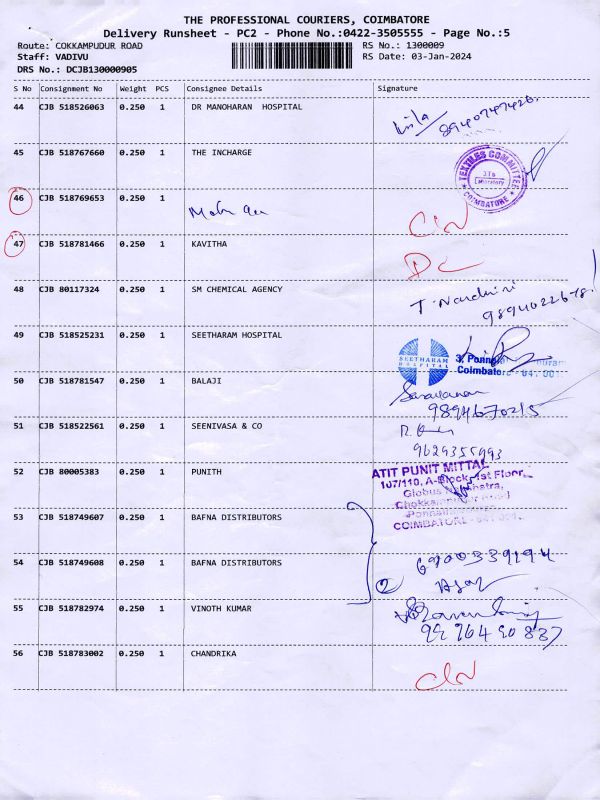 THE PROFESSIONAL COURIERS, COIMBATORE
Delivery Runsheet - PC2 - Phone No.:0422-3505555 - Page No.:5
Route: COKKAMPUDUR ROAD RS No.: 1300009
Staff: VADIVU RS Date: 03-Jan-2024
DRS No.: DCJB130000905
S No Consignment No Weight PCS Consignee Details Signature
44 CJB 518526063 0.250 1 DR MANOHARAN HOSPITAL
8940747426
45 CJB 518767660 0.250 1 THE INCHARGE
TEXTILES COMMITTEE
Laboratory
COIMBATORE
46 CJB 518769653 0.250 1
47 CJB 518781466 0.250 1 KAVITHA
DC
48 CJB 80117324 0.250 1 SM CHEMICAL AGENCY
T. Nandhini
9894022678
49 CJB 518525231 0.250 1 SEETHARAM HOSPITAL
SEETHARAM
HOSPITAL
50 CJB 518781547 0.250 1 BALAJI
Saravanan
9894670215
51 CJB 518522561 0.250 1 SEENIVASA & CO
9629355993
52 CJB 80005383 0.250 1 PUNITH
ATIT PUNIT MITTAL
107/110, A-Block, 1st Floor,
Globus
COIMBATORE
53 CJB 518749607 0.250 1 BAFNA DISTRIBUTORS
54 CJB 518749608 0.250 1 BAFNA DISTRIBUTORS
2
55 CJB 518782974 0.250 1 VINOTH KUMAR
56 CJB 518783002 0.250 1 CHANDRIKA